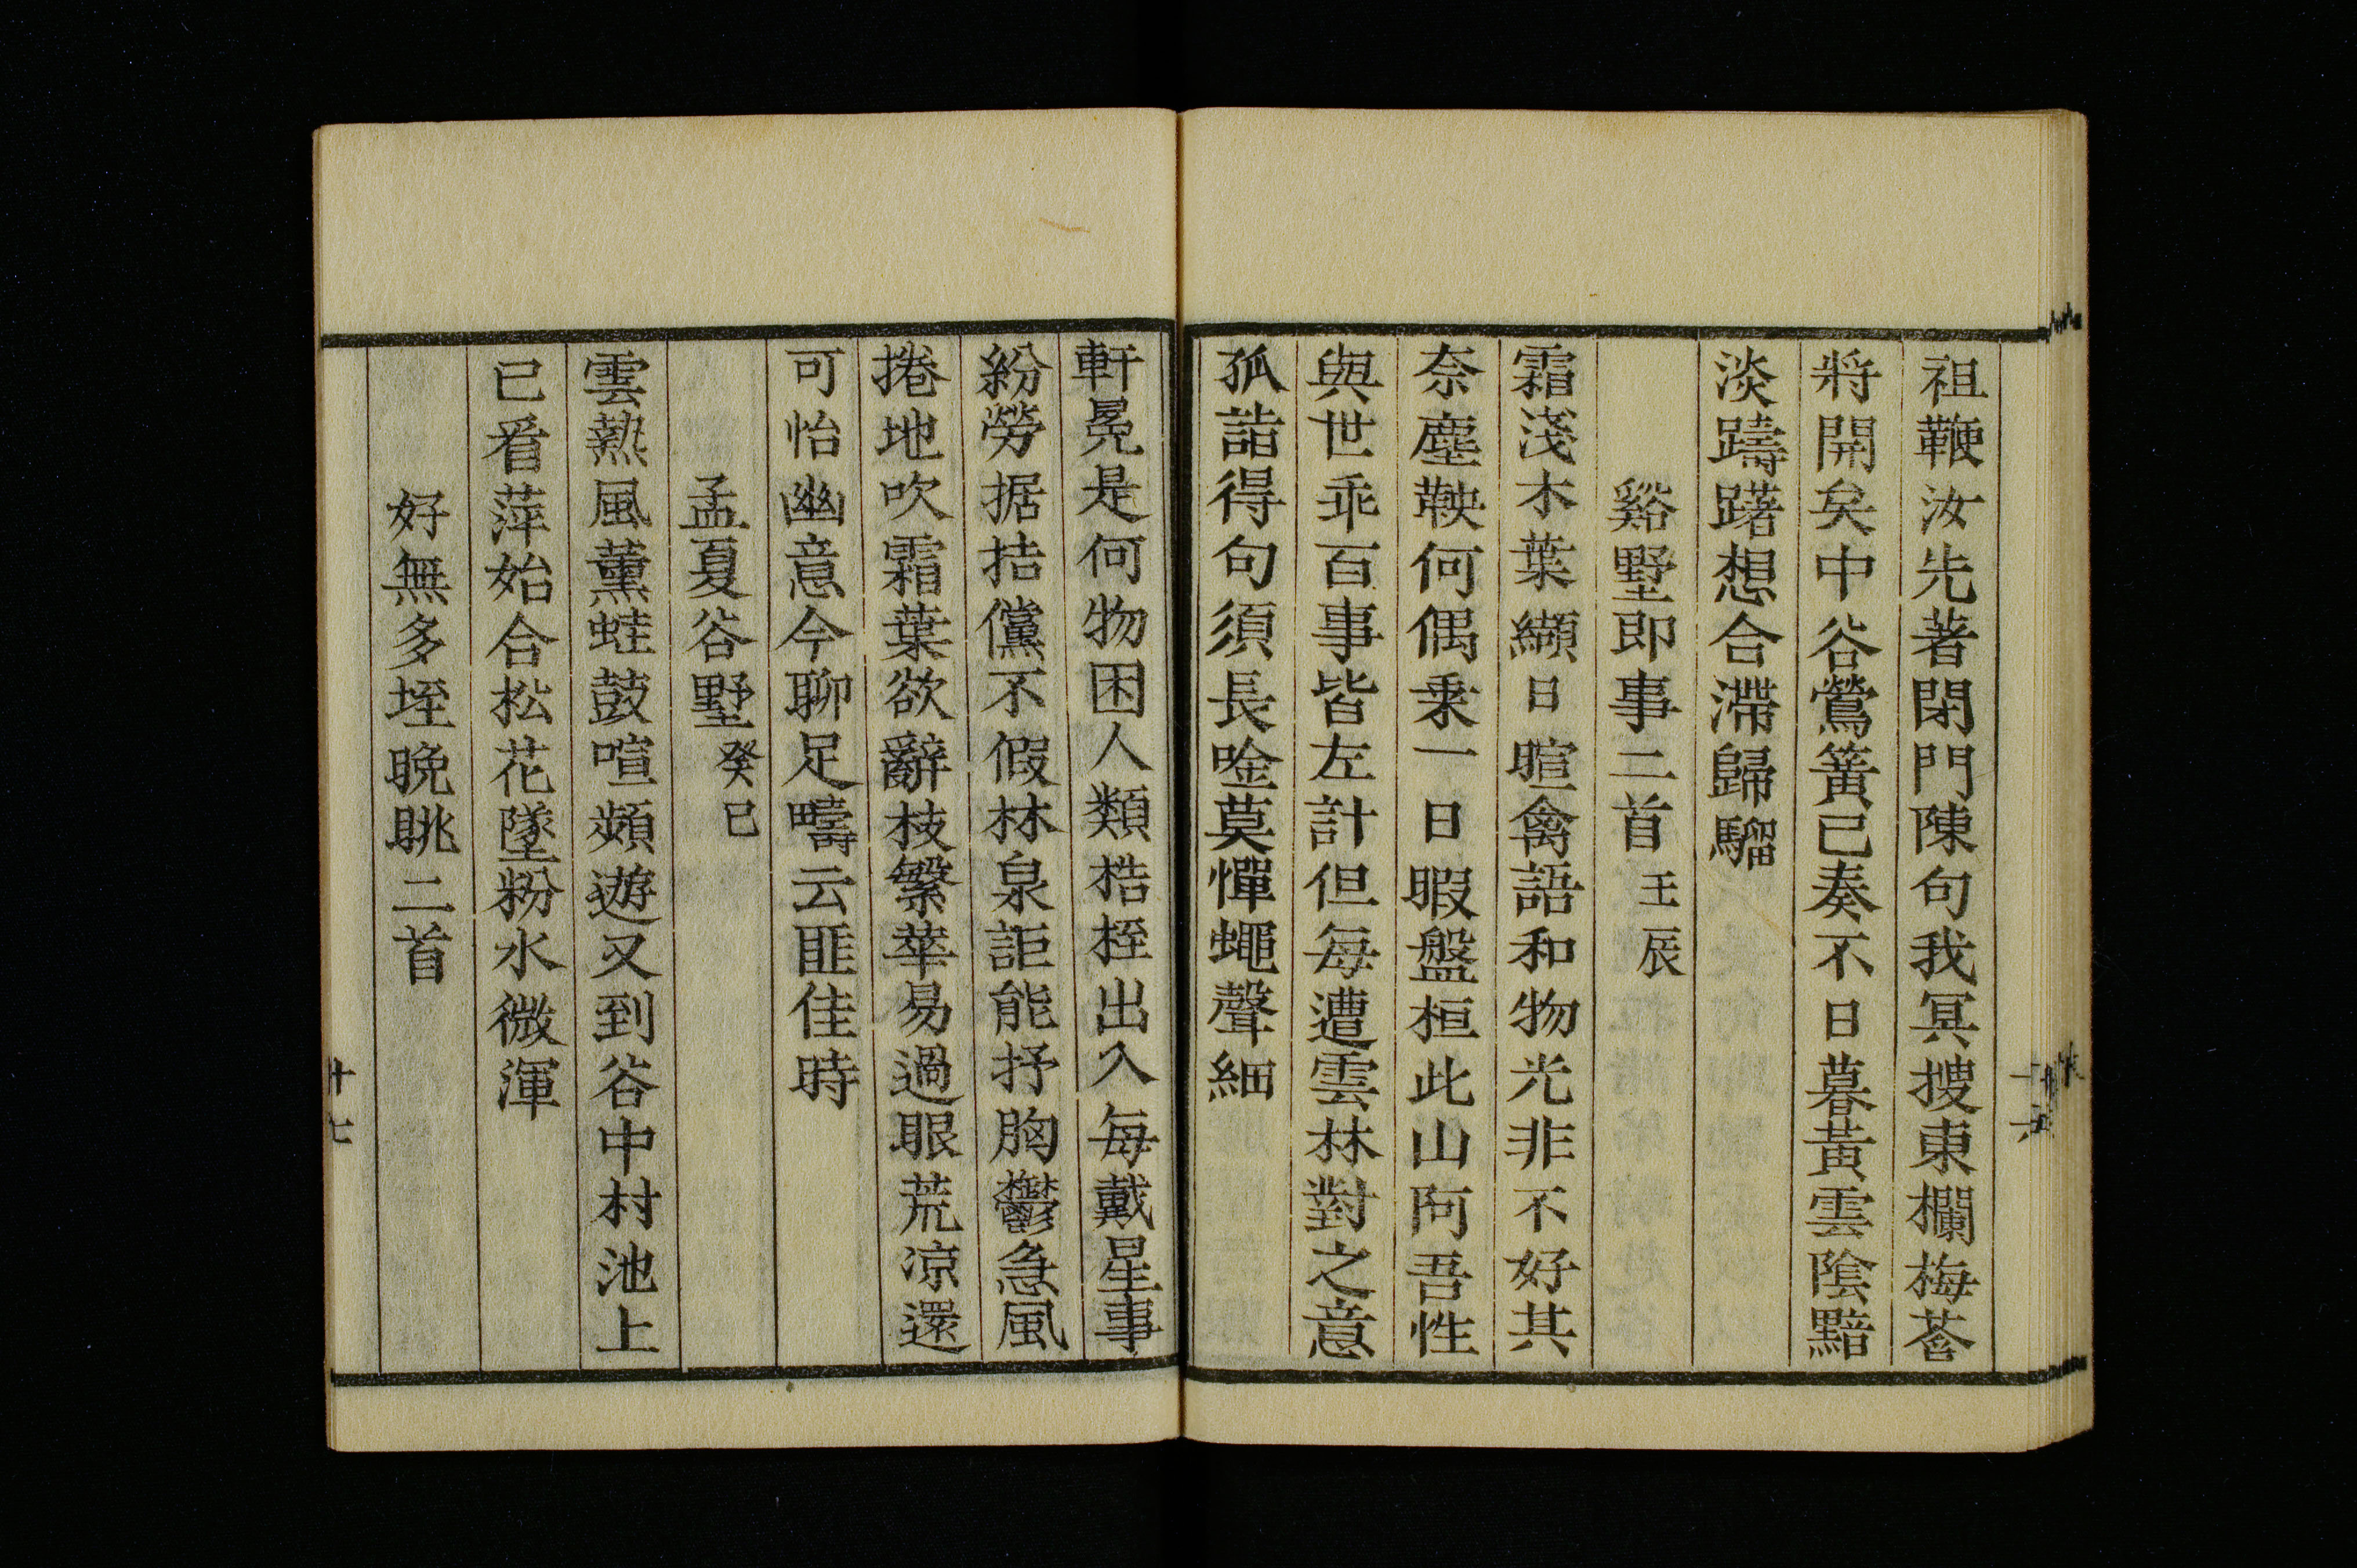 祖鞭汝先著閉門陳句我冥搜東欄梅萼
將開矣中谷鶯簧已奏不日暮黃雲陰黯
淡躊躇想合滯歸騮
谿墅即事二首 壬辰
霜淺木葉纈日暄禽語和物光非不好其
奈塵鞅何偶乘一日暇盤桓此山阿吾性
與世乖百事皆左計但每遭雲林對之意
孤詣得句須長唫莫憚蠅聲細
軒冕是何物困人類梏桎出入每戴星事
紛勞据拮儻不假林泉詎能抒胸鬱急風
捲地吹霜葉欲辭枝繁華易過眼荒涼還
可怡幽意今聊足疇云匪佳時
孟夏谷墅 癸巳
雲熱風薰蛙鼓喧頻遊又到谷中村池上
已看萍始合松花墜粉水微渾
好無多垤晚眺二首
十七